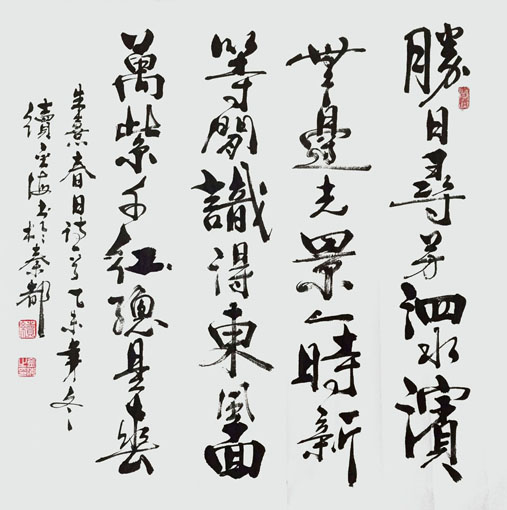 勝日尋芳泗水濱
無邊光景一時新
等閒識得東風面
萬紫千紅總是春
朱熹春日詩一首乙未年冬
續主海書於秦都